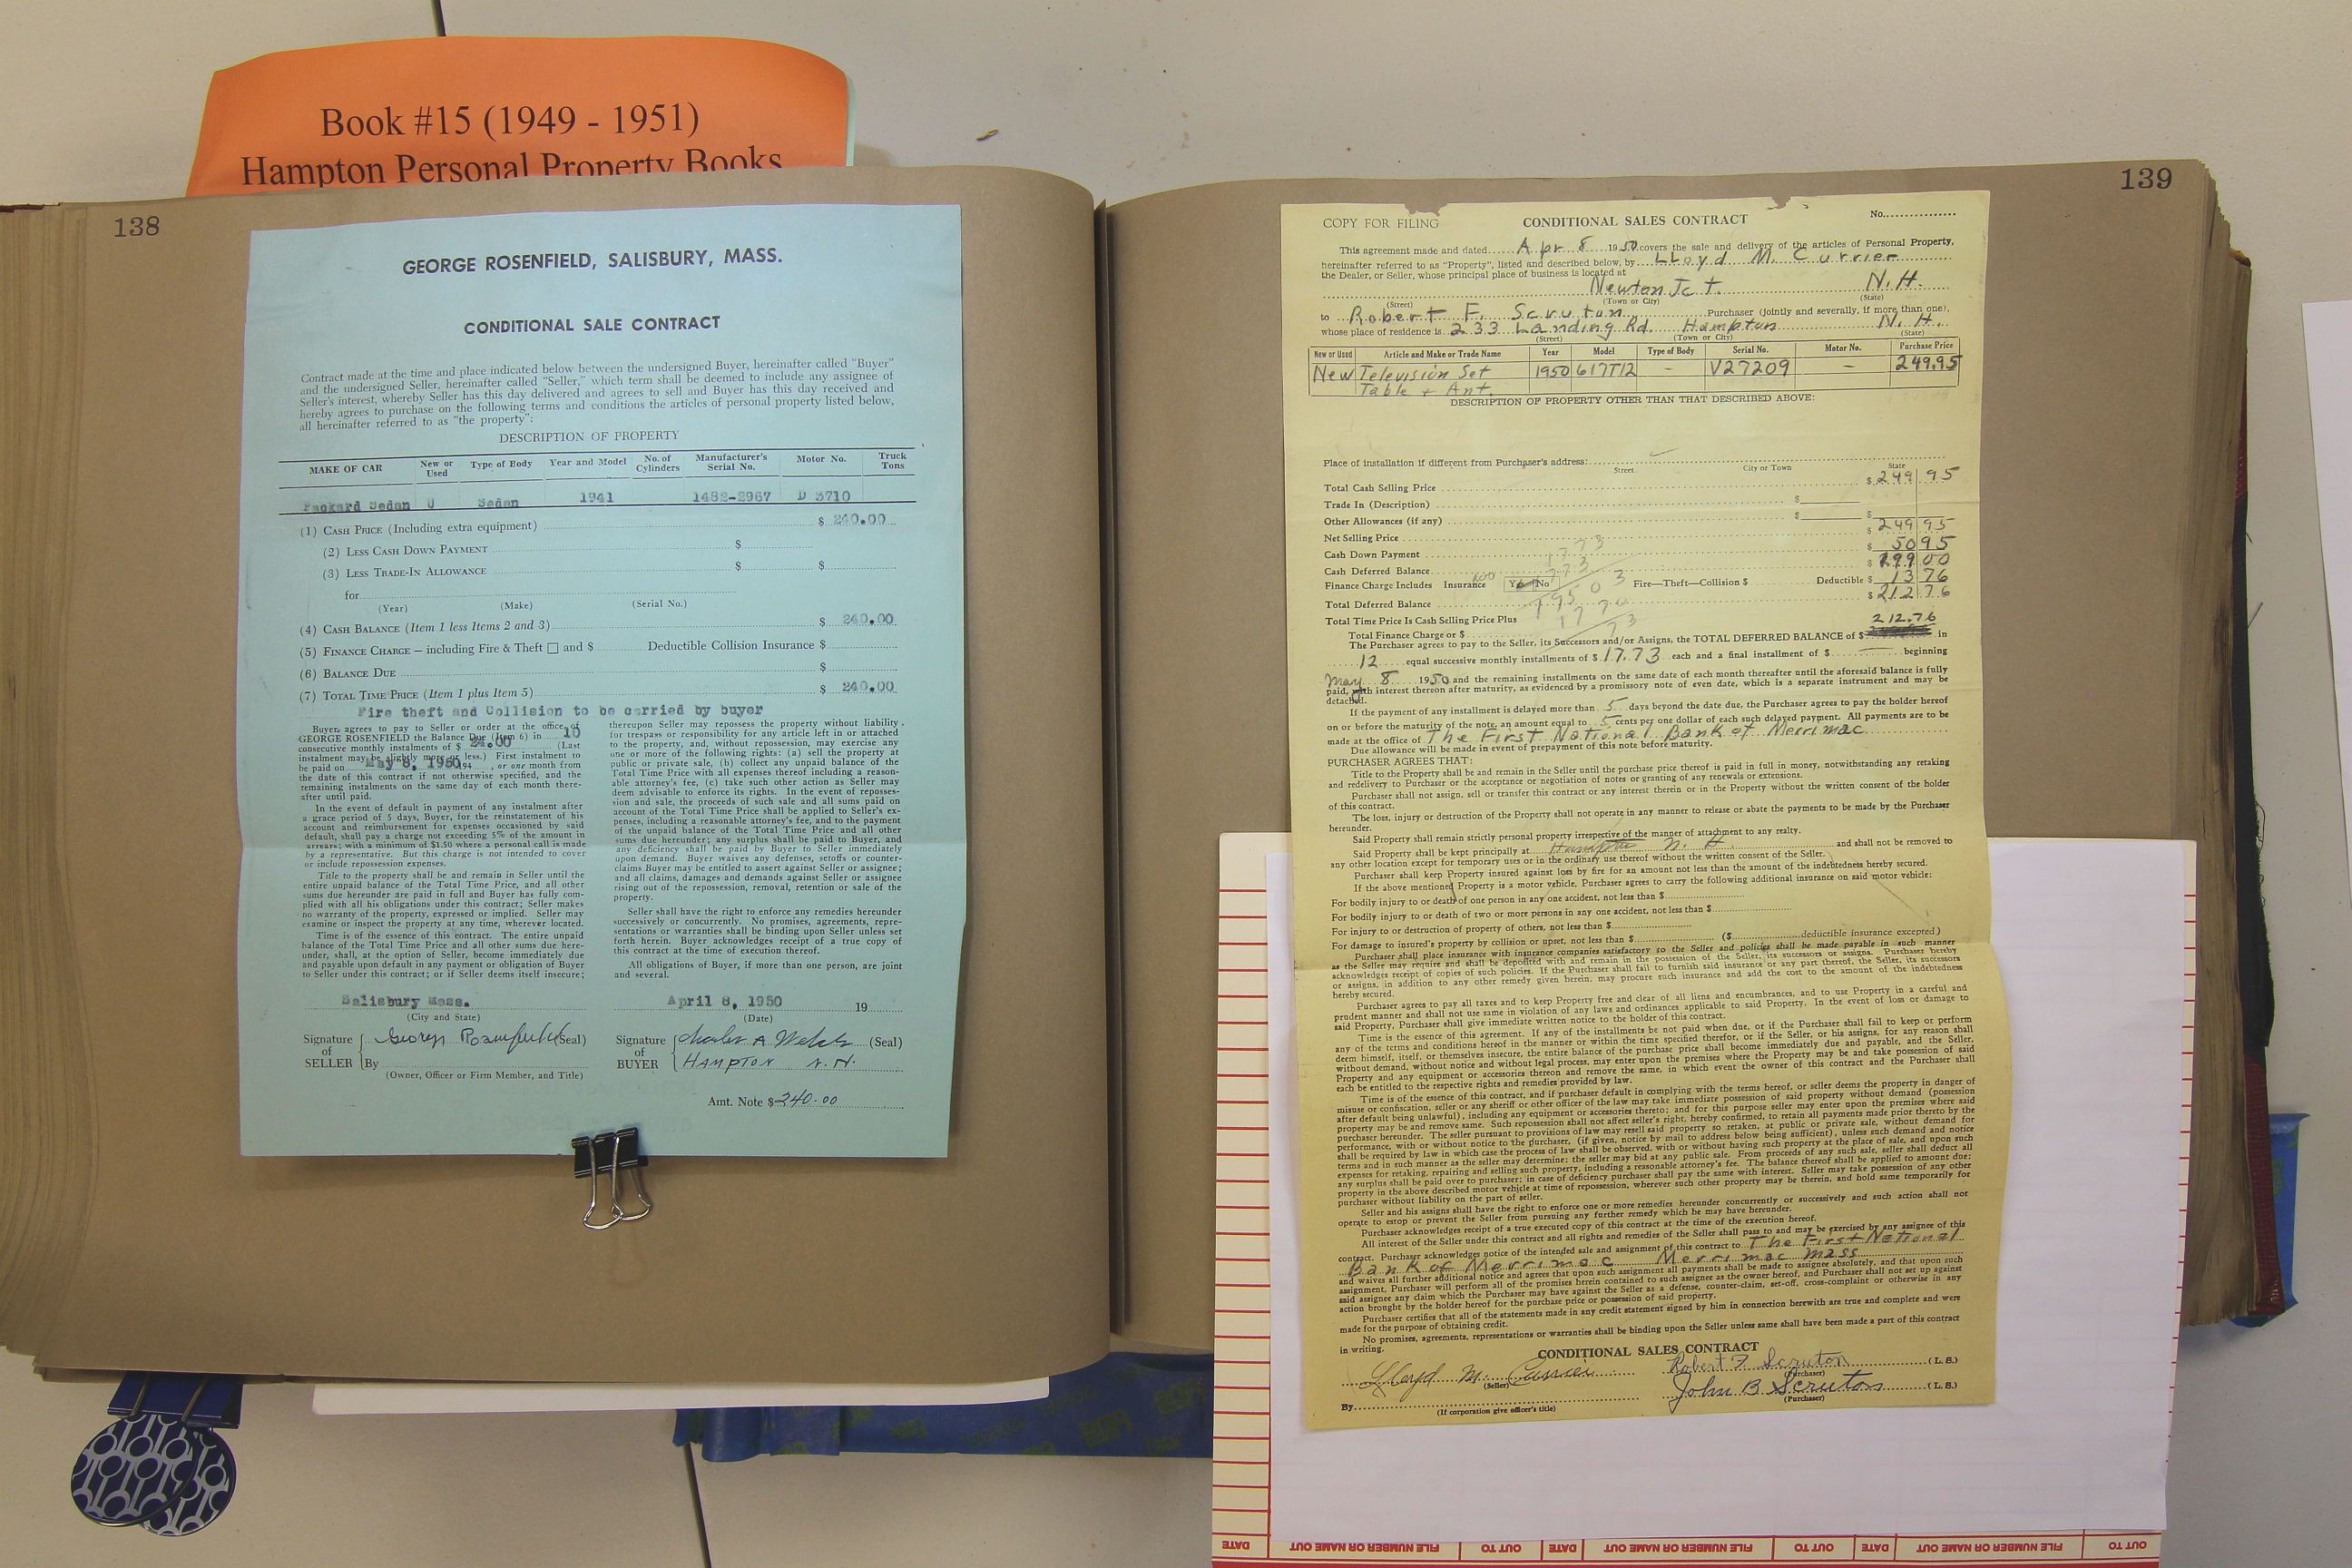 Book #15 (1949 - 1951)
Hampton Personal Property Books
138
GEORGE ROSENFIELD, SALISBURY, MASS.
CONDITIONAL SALE CONTRACT
Contract made at the time and place indicated below between the undersigned Buyer, hereinafter called "Buyer"
and the undersigned Seller, hereinafter called "Seller," which term shall be deemed to include any assignee of
Seller's interest, whereby Seller has this day delivered and agrees to sell and Buyer has this day received and
hereby agrees to purchase on the following terms and conditions the articles of personal property listed below,
all hereinafter referred to as "the property":
DESCRIPTION OF PROPERTY
MAKE OF CAR New or Used Type of Body Year and Model No. of Cylinders Manufacturer's Serial No. Motor No. Truck Tons
Packard Sedan U Sedan 1941 1482-2967 D 3710
(1) CASH PRICE (Including extra equipment) $ 240.00
(2) LESS CASH DOWN PAYMENT $
(3) LESS TRADE-IN ALLOWANCE $ $
for
(Year) (Make) (Serial No.)
(4) CASH BALANCE (Item 1 less Items 2 and 3) $ 240.00
(5) FINANCE CHARGE — including Fire & Theft and $ Deductible Collision Insurance $
(6) BALANCE DUE $
(7) TOTAL TIME PRICE (Item 1 plus Item 5) $ 240.00
Fire theft and Collision to be carried by buyer
Buyer agrees to pay to Seller or order at the office of
GEORGE ROSENFIELD the Balance Due (Item 6) in 10
consecutive monthly instalments of $ 24.00 (Last
instalment may be slightly more or less.) First instalment to
be paid on May 8, 1950 194 , or one month from
the date of this contract if not otherwise specified, and the
remaining instalments on the same day of each month there-
after until paid.
In the event of default in payment of any instalment after
a grace period of 5 days, Buyer, for the reinstatement of his
account and reimbursement for expenses occasioned by said
default, shall pay a charge not exceeding 5% of the amount in
arrears; with a minimum of $1.50 where a personal call is made
by a representative. But this charge is not intended to cover
or include repossession expenses.
Title to the property shall be and remain in Seller until the
entire unpaid balance of the Total Time Price, and all other
sums due hereunder are paid in full and Buyer has fully com-
plied with all his obligations under this contract; Seller makes
no warranty of the property, expressed or implied. Seller may
examine or inspect the property at any time, wherever located.
Time is of the essence of this contract. The entire unpaid
balance of the Total Time Price and all other sums due here-
under, shall, at the option of Seller, become immediately due
and payable upon default in any payment or obligation of Buyer
to Seller under this contract; or if Seller deems itself insecure;
thereupon Seller may repossess the property without liability
for trespass or responsibility for any article left in or attached
to the property, and, without repossession, may exercise any
one or more of the following rights: (a) sell the property at
public or private sale, (b) collect any unpaid balance of the
Total Time Price with all expenses thereof including a reason-
able attorney's fee, (c) take such other action as Seller may
deem advisable to enforce its rights. In the event of reposses-
sion and sale, the proceeds of such sale and all sums paid on
account of the Total Time Price shall be applied to Seller's ex-
penses, including a reasonable attorney's fee, and to the payment
of the unpaid balance of the Total Time Price and all other
sums due hereunder; any surplus shall be paid to Buyer, and
any deficiency shall be paid by Buyer to Seller immediately
upon demand. Buyer waives any defenses, setoffs or counter-
claims Buyer may be entitled to assert against Seller or assignee;
and all claims, damages and demands against Seller or assignee
rising out of the repossession, removal, retention or sale of the
property.
Seller shall have the right to enforce any remedies hereunder
successively or concurrently. No promises, agreements, repre-
sentations or warranties shall be binding upon Seller unless set
forth herein. Buyer acknowledges receipt of a true copy of
this contract at the time of execution thereof.
All obligations of Buyer, if more than one person, are joint
and several.
Salisbury Mass. April 8, 1950 19
(City and State) (Date)
Signature of SELLER George Rosenfield (Seal)
By
(Owner, Officer or Firm Member, and Title)
Signature of BUYER Charles A Welch (Seal)
HAMPTON N.H.
Amt. Note $240.00
139
COPY FOR FILING CONDITIONAL SALES CONTRACT No.
This agreement made and dated Apr 8 1950 covers the sale and delivery of the articles of Personal Property,
hereinafter referred to as "Property", listed and described below, by LLoyd M. Currier
the Dealer, or Seller, whose principal place of business is located at
Newton Jct. N.H.
(Street) (Town or City) (State)
to Robert F. Scruton Purchaser (jointly and severally, if more than one),
whose place of residence is 233 Landing Rd. Hampton N.H.
(Street) (Town or City) (State)
New or Used Article and Make or Trade Name Year Model Type of Body Serial No. Motor No. Purchase Price
New Television Set 1950 617T12 - V27209 - 249.95
Table + Ant.
DESCRIPTION OF PROPERTY OTHER THAN THAT DESCRIBED ABOVE:
Place of installation if different from Purchaser's address:
Street City or Town State
Total Cash Selling Price $ 249 95
Trade In (Description) $
Other Allowances (if any) $ $
Net Selling Price $ 249 95
Cash Down Payment $ 50 95
Cash Deferred Balance $ 199 00
Finance Charge Includes Insurance Yes No Fire—Theft—Collision $ Deductible $ 13 76
Total Deferred Balance $ 212 76
Total Time Price Is Cash Selling Price Plus
Total Finance Charge or $ 212.76
The Purchaser agrees to pay to the Seller, its Successors and/or Assigns, the TOTAL DEFERRED BALANCE of $ in
12 equal successive monthly installments of $ 17.73 each and a final installment of $ beginning
May 8 1950 and the remaining installments on the same date of each month thereafter until the aforesaid balance is fully
paid, with interest thereon after maturity, as evidenced by a promissory note of even date, which is a separate instrument and may be
detached.
If the payment of any installment is delayed more than 5 days beyond the date due, the Purchaser agrees to pay the holder hereof
on or before the maturity of the note, an amount equal to 5 cents per one dollar of each such delayed payment. All payments are to be
made at the office of The First National Bank of Merrimac
Due allowance will be made in event of prepayment of this note before maturity.
PURCHASER AGREES THAT:
Title to the Property shall be and remain in the Seller until the purchase price thereof is paid in full in money, notwithstanding any retaking
and redelivery to Purchaser or the acceptance or negotiation of notes or granting of any renewals or extensions.
Purchaser shall not assign, sell or transfer this contract or any interest therein or in the Property without the written consent of the holder
of this contract.
The loss, injury or destruction of the Property shall not operate in any manner to release or abate the payments to be made by the Purchaser
hereunder.
Said Property shall remain strictly personal property irrespective of the manner of attachment to any realty.
Said Property shall be kept principally at Hampton N. H. and shall not be removed to
any other location except for temporary uses or in the ordinary use thereof without the written consent of the Seller.
Purchaser shall keep Property insured against loss by fire for an amount not less than the amount of the indebtedness hereby secured.
If the above mentioned Property is a motor vehicle, Purchaser agrees to carry the following additional insurance on said motor vehicle:
For bodily injury to or death of one person in any one accident, not less than $
For bodily injury to or death of two or more persons in any one accident, not less than $
For injury to or destruction of property of others, not less than $
For damage to insured's property by collision or upset, not less than $ ($ deductible insurance excepted)
Purchaser shall place insurance with insurance companies satisfactory to the Seller and policies shall be made payable in such manner
as the Seller may require and shall be deposited with and remain in the possession of the Seller, its successors or assigns. Purchaser hereby
acknowledges receipt of copies of such policies. If the Purchaser shall fail to furnish said insurance or any part thereof, the Seller, its successors
or assigns, in addition to any other remedy given herein, may procure such insurance and add the cost to the amount of the indebtedness
hereby secured.
Purchaser agrees to pay all taxes and to keep Property free and clear of all liens and encumbrances, and to use Property in a careful and
prudent manner and shall not use same in violation of any laws and ordinances applicable to said Property. In the event of loss or damage to
said Property, Purchaser shall give immediate written notice to the holder of this contract.
Time is the essence of this agreement. If any of the installments be not paid when due, or if the Purchaser shall fail to keep or perform
any of the terms and conditions hereof in the manner or within the time specified therefor, or if the Seller, or his assigns, for any reason shall
deem himself, itself, or themselves insecure, the entire balance of the purchase price shall become immediately due and payable, and the Seller,
without demand, without notice and without legal process, may enter upon the premises where the Property may be and take possession of said
Property and any equipment or accessories thereon and remove the same, in which event the owner of this contract and the Purchaser shall
each be entitled to the respective rights and remedies provided by law.
Time is of the essence of this contract, and if purchaser default in complying with the terms hereof, or seller deems the property in danger of
misuse or confiscation, seller or any sheriff or other officer of the law may take immediate possession of said property without demand (possession
after default being unlawful), including any equipment or accessories thereto; and for this purpose seller may enter upon the premises where said
property may be and remove same. Such repossession shall not affect seller's right, hereby confirmed, to retain all payments made prior thereto by the
purchaser hereunder. The seller pursuant to provisions of law may resell said property so retaken, at public or private sale, without demand for
performance, with or without notice to the purchaser, (if given, notice by mail to address below being sufficient), unless such demand and notice
shall be required by law in which case the process of law shall be observed, with or without having such property at the place of sale, and upon such
terms and in such manner as the seller may determine; the seller may bid at any public sale. From proceeds of any such sale, seller shall deduct all
expenses for retaking, repairing and selling such property, including a reasonable attorney's fee. The balance thereof shall be applied to amount due;
any surplus shall be paid over to purchaser; in case of deficiency purchaser shall pay the same with interest. Seller may take possession of any other
property in the above described motor vehicle at time of repossession, wherever such other property may be therein, and hold same temporarily for
purchaser without liability on the part of seller.
Seller and his assigns shall have the right to enforce one or more remedies hereunder concurrently or successively and such action shall not
operate to estop or prevent the Seller from pursuing any further remedy which he may have hereunder.
Purchaser acknowledges receipt of a true executed copy of this contract at the time of the execution hereof.
All interest of the Seller under this contract and all rights and remedies of the Seller shall pass to and may be exercised by any assignee of this
contract. Purchaser acknowledges notice of the intended sale and assignment of this contract to The First National
Bank of Merrimac Merrimac Mass
and waives all further additional notice and agrees that upon such assignment all payments shall be made to assignee absolutely, and that upon such
assignment, Purchaser will perform all of the promises herein contained to such assignee as the owner hereof, and Purchaser shall not set up against
said assignee any claim which the Purchaser may have against the Seller as a defense, counter-claim, set-off, cross-complaint or otherwise in any
action brought by the holder hereof for the purchase price or possession of said property.
Purchaser certifies that all of the statements made in any credit statement signed by him in connection herewith are true and complete and were
made for the purpose of obtaining credit.
No promises, agreements, representations or warranties shall be binding upon the Seller unless same shall have been made a part of this contract
in writing.
CONDITIONAL SALES CONTRACT
Lloyd M. Currier Robert F Scruton (L. S.)
(Seller) (Purchaser)
John B Scruton (L. S.)
By (Purchaser)
(If corporation give officer's title)
DATE FILE NUMBER OR NAME OUT OUT TO DATE FILE NUMBER OR NAME OUT OUT TO DATE FILE NUMBER OR NAME OUT OUT TO